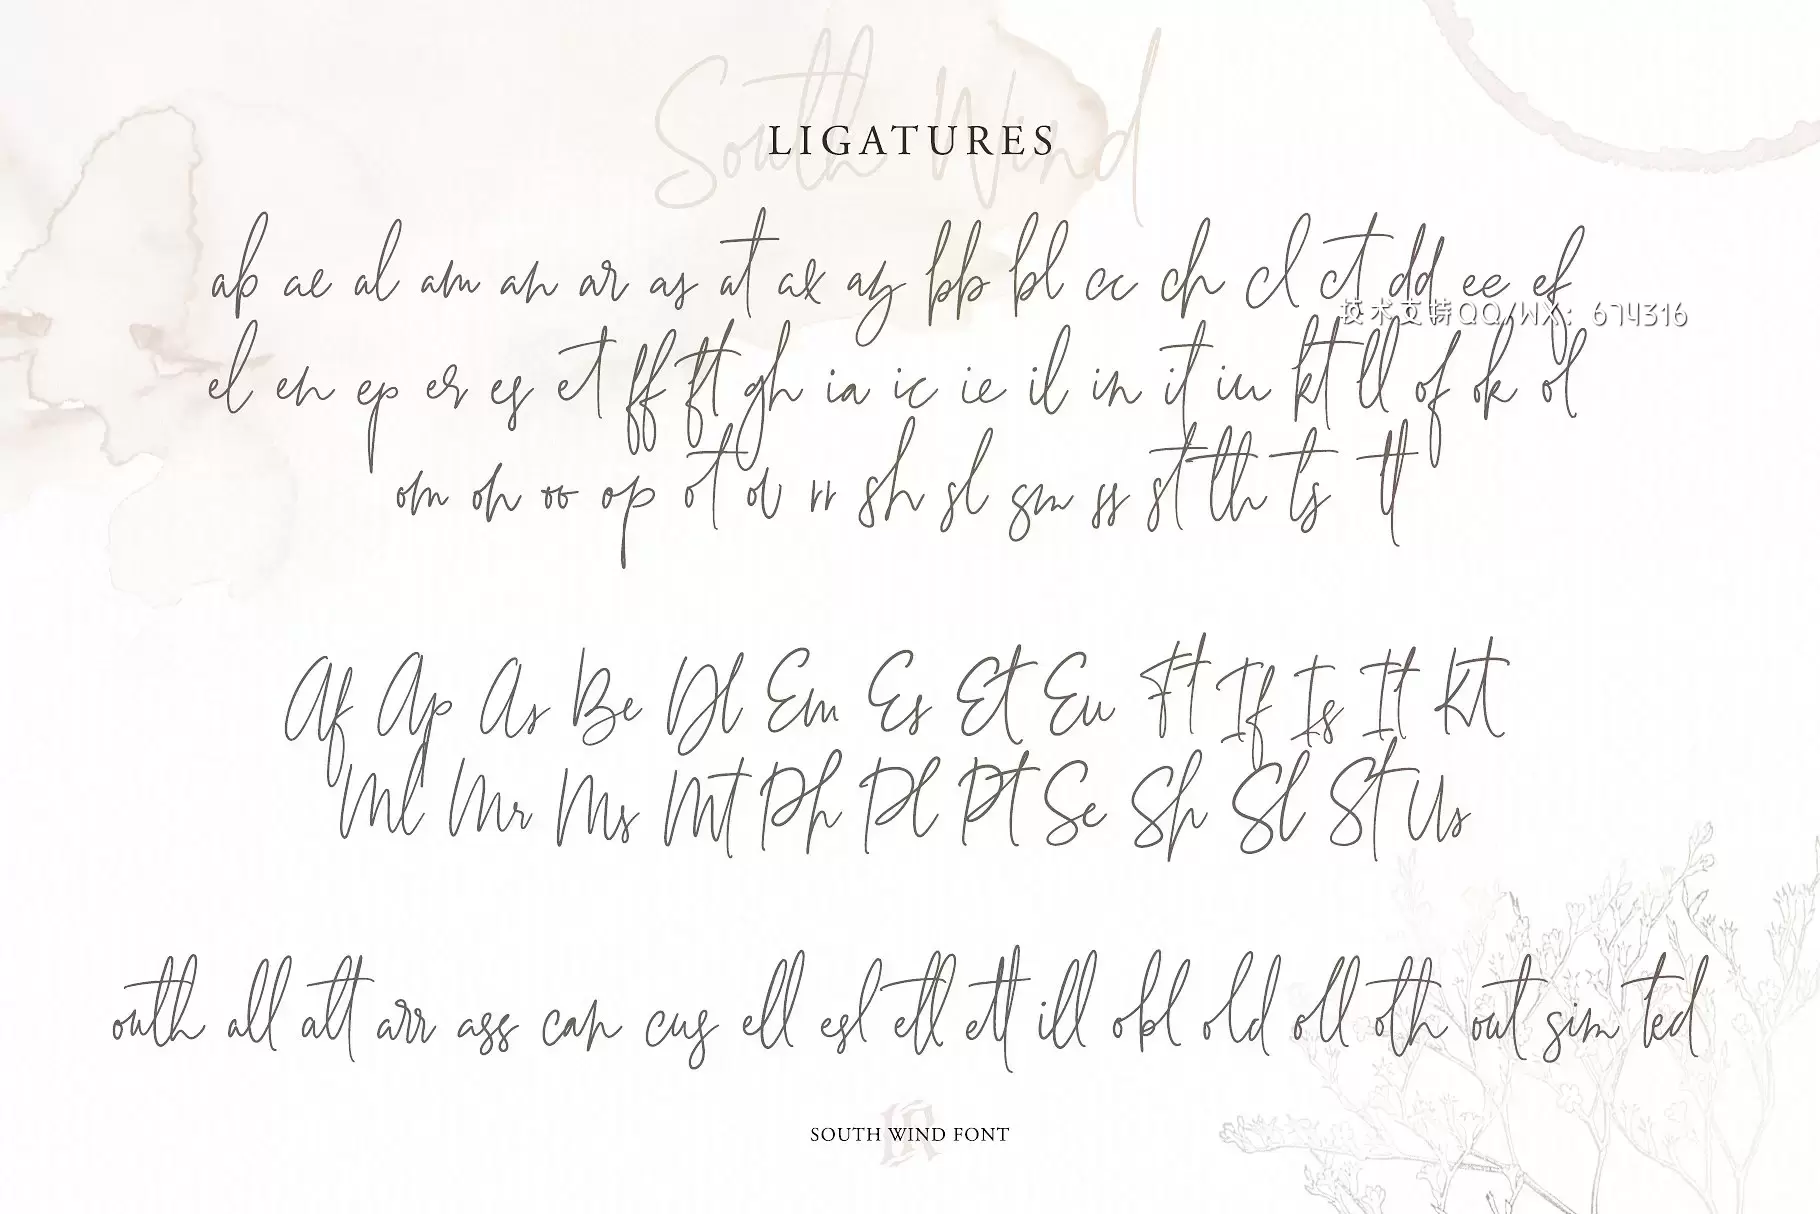 South Wind
LIGATURES
ab ae al am an ar as at ax ay bb bl cc ch cl ct dd ee ef
技术支持QQ/WX：674316
el en ep er es et ff ft gh ia ic ie il in it iu kt ll of ok ol
om on oo op ot ov rr sh sl sm ss st th ts tt
Af Ap As Be Dl Em Es Et Eu Ft If Is It Kt
Ml Mr Ms Mt Ph Pl Pt Se Sh Sl St Us
outh all att arr ass can cus ell esl etl ett ill obl old oll oth out sim ted
SOUTH WIND FONT